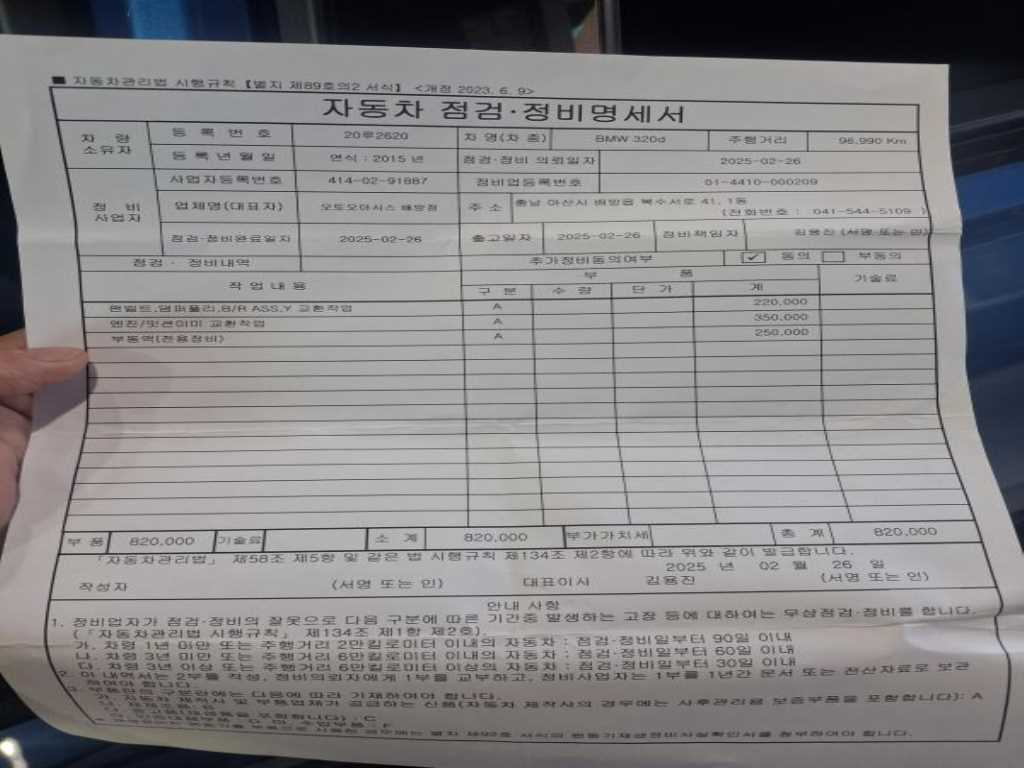 ■ 자동차관리법 시행규칙 【별지 제89호의2 서식】 <개정 2023. 6. 9>
자동차 점검·정비명세서
차 량 소유자 등 록 번 호 20루2620 차 명(차 종) BMW 320d 주행거리 96,990 Km
등 록 년 월 일 연식 : 2015 년 점검·정비 의뢰일자 2025-02-26
정 비 사업자 사업자등록번호 414-02-91887 정비업등록번호 01-4410-000209
업체명(대표자) 오토오아시스 배방점 주 소 충남 아산시 배방읍 북수서로 41, 1동
(전화번호 : 041-544-5109 )
점검·정비완료일지 2025-02-26 출고일자 2025-02-26 정비책임자 김용진 (서명 또는 인)
점검 · 정비내역 추가정비동의여부 ✓ 동의 부동의
작 업 내 용 부 품 기술료
구 분 수 량 단 가 계
팬벨트,댐퍼풀리,B/R ASS,Y 교환작업 A 220,000
엔진/밋션미미 교환작업 A 350,000
부동액(전용정비) A 250,000
부 품 820,000 기술료 소 계 820,000 부가가치세 총 계 820,000
「자동차관리법」 제58조 제5항 및 같은 법 시행규칙 제134조 제2항에 따라 위와 같이 발급합니다.
2025 년 02 월 26 일
작성자 (서명 또는 인) 대표이사 김용진 (서명 또는 인)
안내 사항
1. 정비업자가 점검·정비의 잘못으로 다음 구분에 따른 기간중 발생하는 고장 등에 대하여는 무상점검·정비를 합니다.
(「자동차관리법 시행규칙」 제134조 제1항 제2호).
가. 차령 1년 미만 또는 주행거리 2만킬로미터 이내의 자동차 : 점검·정비일부터 90일 이내
나. 차령 3년 미만 또는 주행거리 6만킬로미터 이내의 자동차 : 점검·정비일부터 60일 이내
다. 차령 3년 이상 또는 주행거리 6만킬로미터 이상의 자동차 : 점검·정비일부터 30일 이내
2. 이 내역서는 2부를 작성, 정비의뢰자에게 1부를 교부하고, 정비사업자는 1부를 1년간 문서 또는 전산자료로 보관
하여야 합니다.
3. 부품란의 구분란에는 다음에 따라 기재하여야 합니다.
가. 자동차 제작사 및 부품업체가 공급하는 신품(자동차 제작사의 경우에는 사후관리용 보증부품을 포함합니다): A
포함합니다) : C
: F
별지 제92호 서식의 원동기재생정비사실확인서를 첨부하여야 합니다.